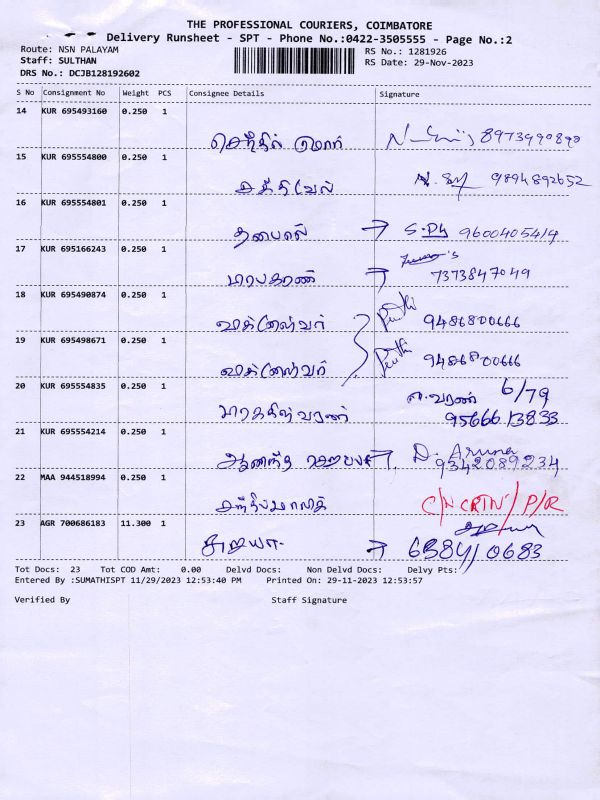 THE PROFESSIONAL COURIERS, COIMBATORE
Delivery Runsheet - SPT - Phone No.:0422-3505555 - Page No.:2
Route: NSN PALAYAM RS No.: 1281926
Staff: SULTHAN RS Date: 29-Nov-2023
DRS No.: DCJB128192602
S No Consignment No Weight PCS Consignee Details Signature
14 KUR 695493160 0.250 1
செந்தில் குமார் 8973990890
15 KUR 695554800 0.250 1
சக்திவேல் 9894892652
16 KUR 695554801 0.250 1
தபால் → 9600405414
17 KUR 695166243 0.250 1
→ 7373847049
18 KUR 695490874 0.250 1
9486800666
19 KUR 695498671 0.250 1
9486800666
20 KUR 695554835 0.250 1
6/79
95666.13833
21 KUR 695554214 0.250 1
ஆனந்த → D. Aruna
9342089234
22 MAA 944518994 0.250 1
C/N CRTN/P/R
23 AGR 700686183 11.300 1
சூர்யா → 6384/0683
Tot Docs: 23 Tot COD Amt: 0.00 Delvd Docs: Non Delvd Docs: Delvy Pts:
Entered By :SUMATHISPT 11/29/2023 12:53:40 PM Printed On: 29-11-2023 12:53:57
Verified By Staff Signature